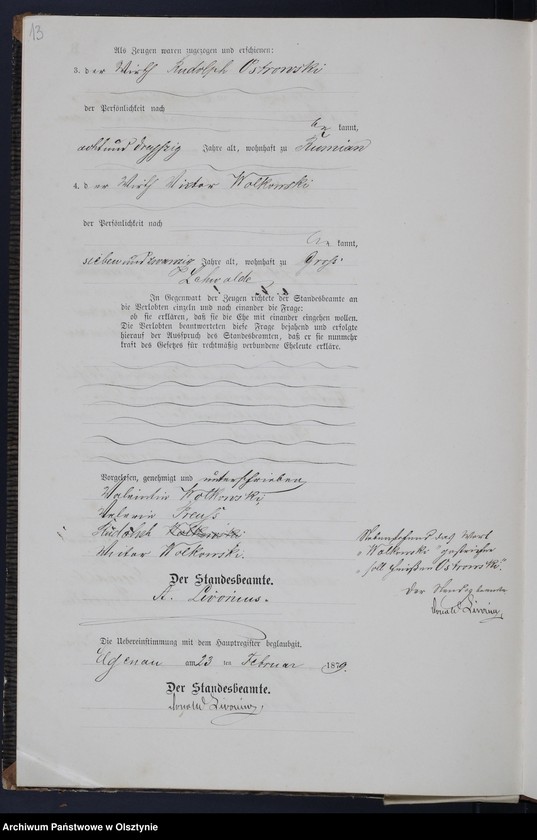 13
Als Zeugen waren zugezogen und erschienen:
3. der Wirth Rudolph Ostrowski
der Persönlichkeit nach
be kannt,
achtunddreißig Jahre alt, wohnhaft zu Rumian
4. d er Wirth Victor Wolkowski
der Persönlichkeit nach
be kannt,
siebenundzwanzig Jahre alt, wohnhaft zu Groß
Lehwalde
In Gegenwart der Zeugen richtete der Standesbeamte an
die Verlobten einzeln und nach einander die Frage:
ob sie erklären, daß sie die Ehe mit einander eingehen wollen.
Die Verlobten beantworteten diese Frage bejahend und erfolgte
hierauf der Ausspruch des Standesbeamten, daß er sie nunmehr
kraft des Gesetzes für rechtmäßig verbundene Eheleute erkläre.
Vorgelesen, genehmigt und unterschrieben
Valentin Wolkowski
Valeria Preuß
Rudolph Wolkowski
Victor Wolkowski
Der Standesbeamte.
A. Livonius.
Nebenstehend das Wort
„Wolkowski" gestrichen
soll heißen „Ostrowski."
Der Standesbeamte
Livonius
Die Uebereinstimmung mit dem Hauptregister beglaubigt.
am 23 ten Februar 1879.
Der Standesbeamte.
Livonius
Archiwum Państwowe w Olsztynie